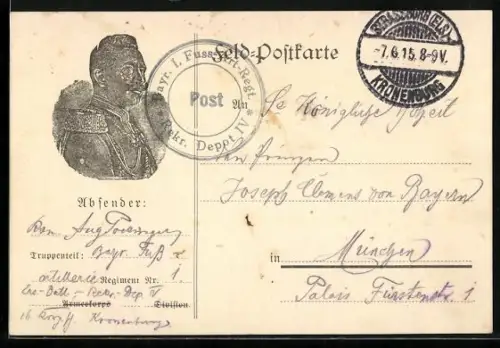 Feld-Postkarte
Bayr. I. Fuss-Art.-Regt.
Post
Rekr. Deppt. IV
STRASSBURG (ELS)
-7.6.15.8-9V.
KRONENBURG
An Se Königliche Hoheit
den Prinzen
Joseph Clemens von Bayern
in München
Palais Fürstenstr. 1
Absender:
Kan. Aug
Truppenteil: Bayr. Fuß
artillerie Regiment Nr. 1
Armeekorps Division
Kronenburg